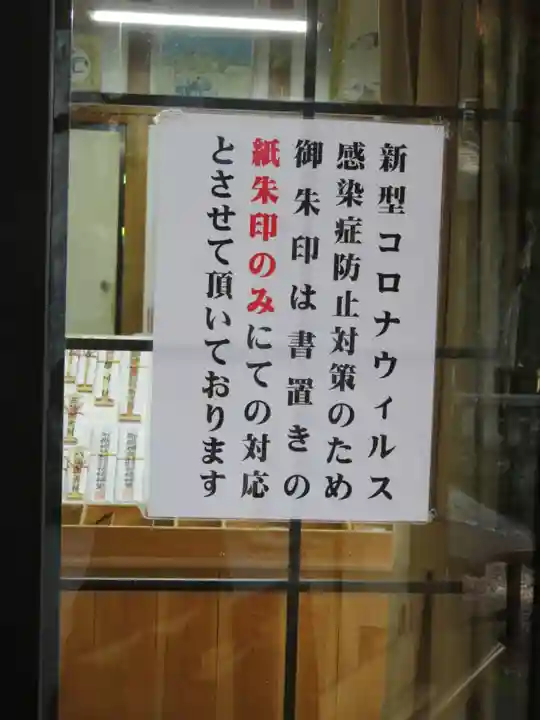 新型コロナウィルス
感染症防止対策のため
御朱印は書置きの
紙朱印のみにての対応
とさせて頂いております